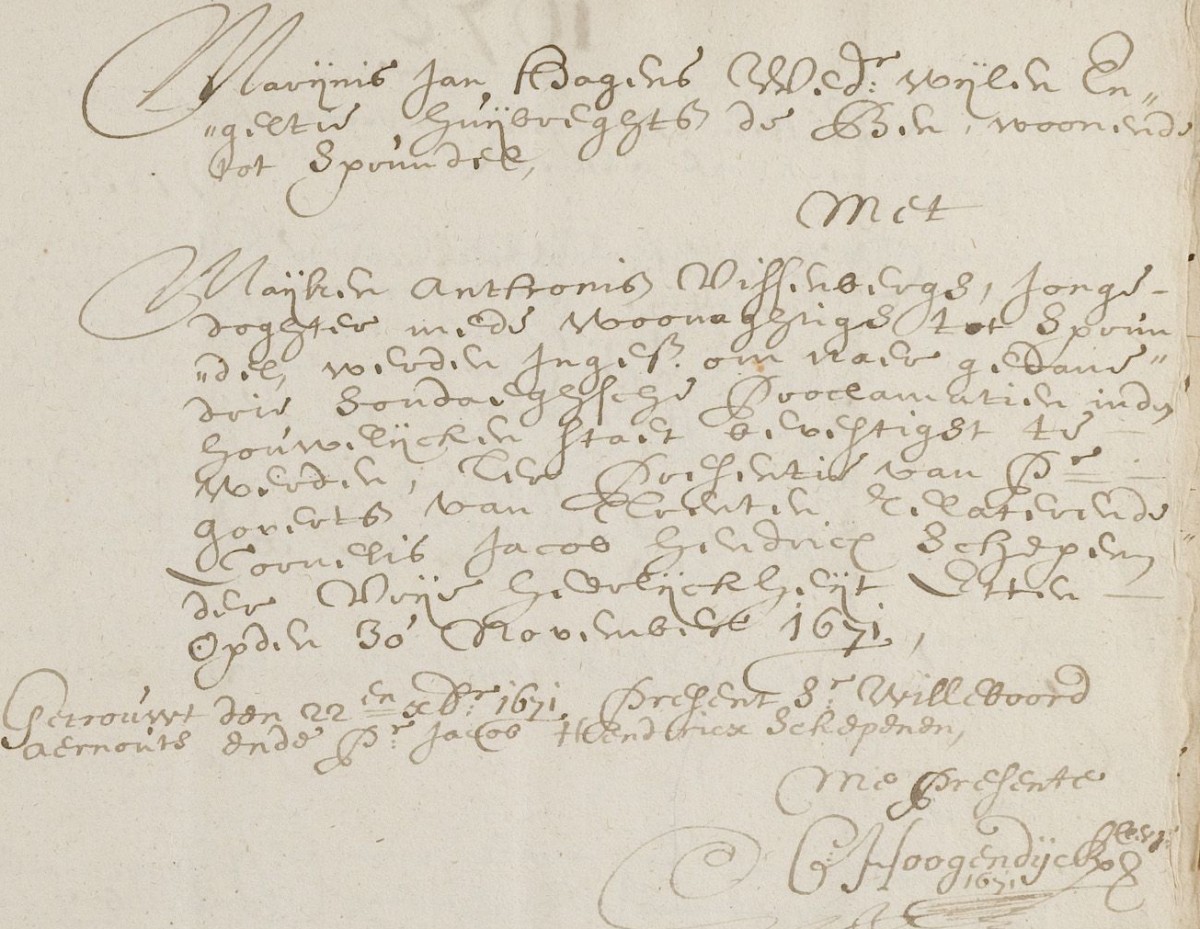 Marijnis Jan Hagens Wedr: wijlen En„
„geltie huijbreghts de Ben, woonende
tot Sprundel,
Met
Maijken Anthonis Vissenbergs, Jonge-
doghter mede woonaghtigh tot Sprun
„del, werden Ingest. om naer gedane„
drie Sondaeghsche Proclamatien inden
houwelijcken staet bevestight te
werden, Ter Presentie van Pr
goverts van Relaterende
Cornelis Jacob Hendricx Schepen
der Vrije heerlijckheijt Etten
Opden 30 November 1671,
Getrouwt den 22en xbr: 1671, Present Sr Willeboord
aernouts ende Pr: Jacob Hendricx Schepenen,
Me Presente
G Hoogendijck
1671